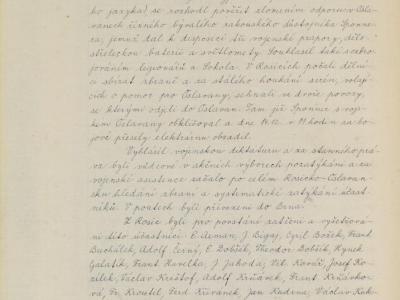 ho jazyka) se rozhodl pověřit zlomením odporu v Osla-
vanech účinného bývalého rakouského důstojníka Sponne-
ra, jemuž dal k disposici tři vojenské prapory, dělo-
střeleckou baterii a světlomety. Souhlasil také s ozbro-
jováním legionářů a Sokola. V Rosicích počali dělníci
sbírat zbraně a za stálého houkání sirén, volají-
cích o pomoc pro Oslavany, sehnali ve dvoře povozy,
se kterými odjeli do Oslavan. Tam již Sponner s voj-
skem Oslavany obkličoval a dne 14.12. v 11 hodin za bo-
jové přesily elektrárnu obsadil.
Vyhlásil vojenskou diktaturu a za stanného prá-
va byli vědoucí v akčních výborech pozatýkáni a za
vojenské asistence začalo po celém Rosicko-Oslavan-
sku hledání zbraní a systematické zatýkání účast-
níků. V poutech byli přivezeni do Brna.
Z Rosic byli pro povstání zatčeni a vyšetřová-
ni tito účastníci: E. Axman, J. Bigaj, Cyril Bošek, Frant.
Buchálek, Adolf Černý, E. Dobšík, Theodor Dobšík, Hynek
Galatík, Frant. Havelka, J. Jahoda, Vil. Kovář, Josef Ko-
zílek, Václav Krištof, Adolf Křižánek, Frant. Křivánko-
vá, Fr. Kroutil, Ferd. Křivánek, Jan Kudrna, Václav Kuk-